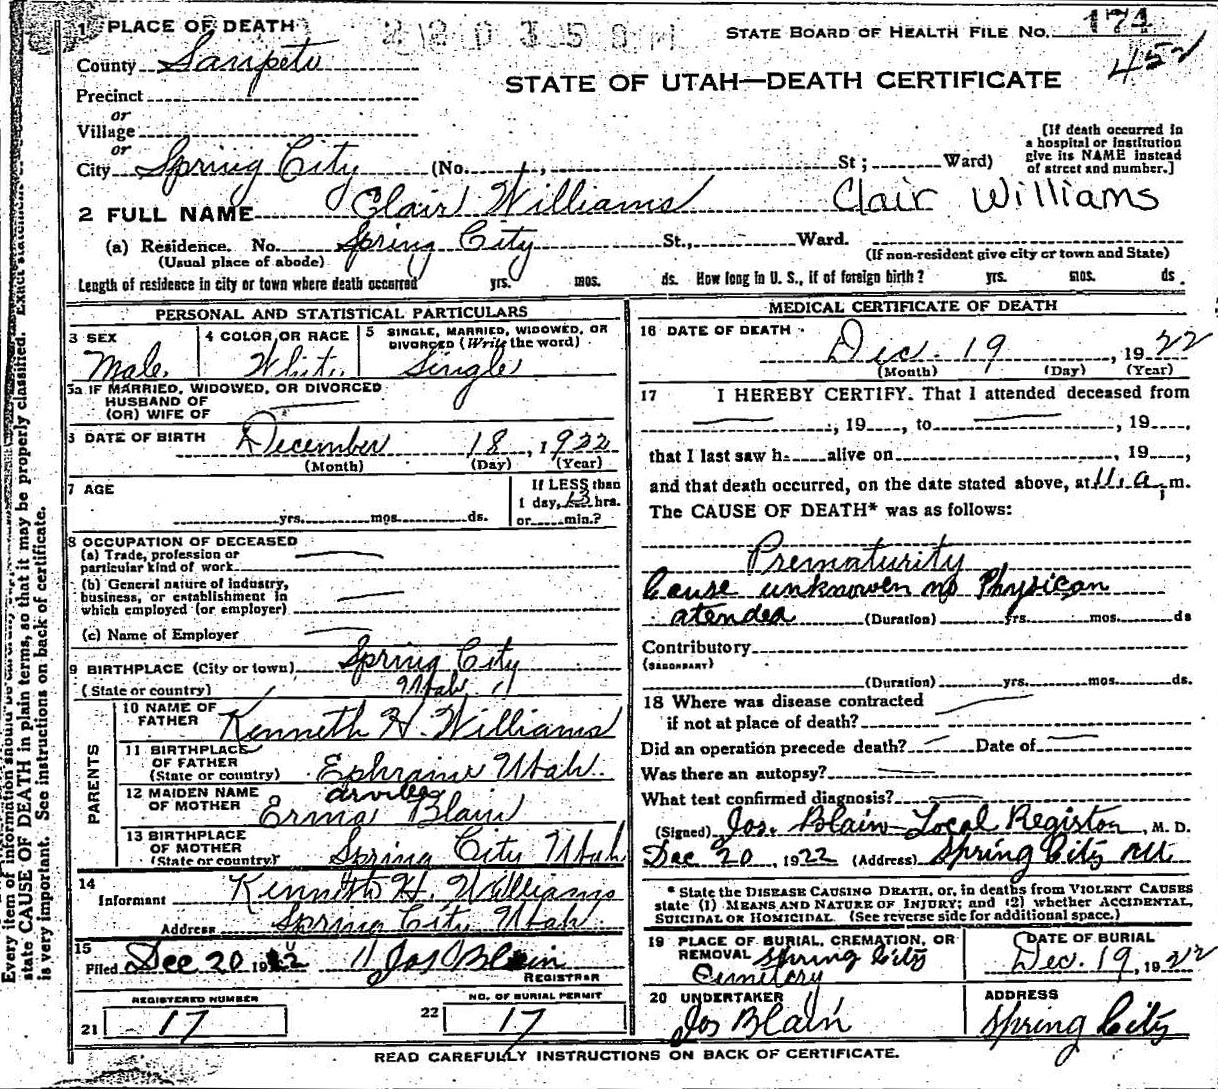 1 PLACE OF DEATH
STATE BOARD OF HEALTH FILE NO. 171
452
County Sanpete
STATE OF UTAH—DEATH CERTIFICATE
Precinct
or
Village
or
City Spring City (No. , St; Ward)
[If death occurred in
a hospital or institution
give its NAME instead
of street and number.]
2 FULL NAME Clair Williams Clair Williams
(a) Residence. No. Spring City St., Ward.
(Usual place of abode) (If non-resident give city or town and State)
Length of residence in city or town where death occurred yrs. mos. ds. How long in U. S., if of foreign birth? yrs. mos. ds.
PERSONAL AND STATISTICAL PARTICULARS
3 SEX Male
4 COLOR OR RACE White
5 SINGLE, MARRIED, WIDOWED, OR
DIVORCED (Write the word)
Single
5a IF MARRIED, WIDOWED, OR DIVORCED
HUSBAND OF
(OR) WIFE OF
6 DATE OF BIRTH December 18, 1922
(Month) (Day) (Year)
7 AGE
yrs. mos. ds.
If LESS than
1 day, 13 hrs.
or min.?
8 OCCUPATION OF DECEASED
(a) Trade, profession or
particular kind of work
(b) General nature of industry,
business, or establishment in
which employed (or employer)
(c) Name of Employer
9 BIRTHPLACE (City or town) Spring City
(State or country) Utah
PARENTS
10 NAME OF
FATHER Kenneth H. Williams
11 BIRTHPLACE
OF FATHER
(State or country) Ephraim Utah
12 MAIDEN NAME
OF MOTHER Erma Blain
13 BIRTHPLACE
OF MOTHER
(State or country) Spring City Utah
14
Informant Kenneth H. Williams
Address Spring City Utah
15
Filed Dec 20 1922 Jos Blain
REGISTRAR
REGISTERED NUMBER
21 17
NO. OF BURIAL PERMIT
22 17
MEDICAL CERTIFICATE OF DEATH
16 DATE OF DEATH
Dec. 19, 1922
(Month) (Day) (Year)
17 I HEREBY CERTIFY. That I attended deceased from
, 19 , to , 19 ,
that I last saw h alive on , 19 ,
and that death occurred, on the date stated above, at 11. a. m.
The CAUSE OF DEATH* was as follows:
Prematurity
Cause unknowen no Physican
atended (Duration) yrs. mos. ds
Contributory
(SECONDARY)
(Duration) yrs. mos. ds.
18 Where was disease contracted
if not at place of death?
Did an operation precede death? Date of
Was there an autopsy?
What test confirmed diagnosis?
(Signed) Jos. Blain Local Registor, M. D.
Dec 20, 1922 (Address) Spring City Ut.
* State the DISEASE CAUSING DEATH, or, in deaths from VIOLENT CAUSES
state (1) MEANS AND NATURE OF INJURY; and (2) whether ACCIDENTAL,
SUICIDAL OR HOMICIDAL. (See reverse side for additional space.)
19 PLACE OF BURIAL, CREMATION, OR
REMOVAL Spring City
Cemetery
DATE OF BURIAL
Dec. 19, 1922
20 UNDERTAKER
Jos Blain
ADDRESS
Spring City
READ CAREFULLY INSTRUCTIONS ON BACK OF CERTIFICATE.
state CAUSE OF DEATH in plain terms, so that it may be properly classified.
is very important. See instructions on back of certificate.